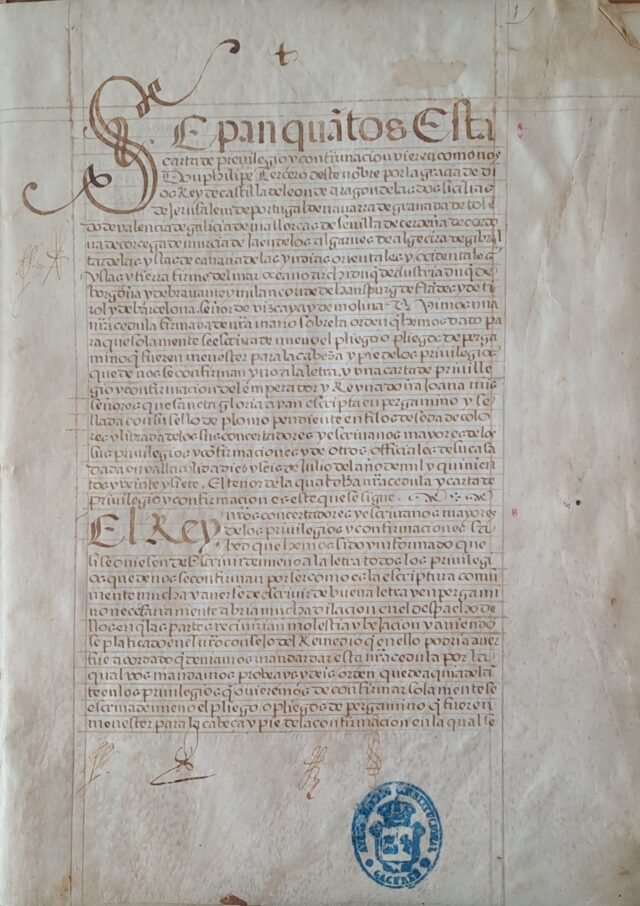 1
Sepan quãtos Esta
A
carta de previlegio y confirmacion vieren como nos
Don philipe Tercero deste nõbre por la gracia de di
os Rey de castilla de leon de aragon de las dos sicilias
de Jerusalem de portugal de navarra de granada de tole
do de valencia de galicia de mallorcas de sevilla de cerdeña de cordo
va de corcega de murcia de Jaen de los algarves de algecira de gibral
tar de las yslas de canaria de las yndias orientales y occidentales
yslas y tierra firme del mar oceano archiduq de austria duq de
borgoña y de bravante y milan conde de hauspurg de flãdes y de ti
rol y de barcelona señor de vizcaya y de molina Vimos una
nrã cedula firmada de nrã mano sobre la orden q hemos dado pa
ra que solamente se escriva de nuevo el pliego o pliegos de perga
mino q fueren menester para la cabeza y pie de los privilegios
que de nos se confirman y no a la letra, y una carta de preville
gio y confirmacion del emperador y Reyna doña Joana mis
señores que sancta gloria ayan escripta en pergamino y se
llada con su sello de plomo pendiente en filos de seda de colo
res y librada de los sus concertadores y escrivanos mayores de los
sus privilegios y confirmaciones y de otros officiales de su casa
dada en vallid a diez y seis de Julio del año de mil y quinien
tos y veinte y siete. El tenor de la qual dha nrã cedula y carta de
privilegio y confirmacion es este que se sigue.
El Rey.
B
nrõs concertadores y escrivanos mayores
de los privilegios y confirmaciones sa
bed que hemos sido ynformado que
si se oviesen de Escrivir de nuevo a la letra todos los privilegi
os que de nos se confirman por ser como es la escriptura comũ
mente mucha y averse de escrivir de buena letra y en pergami
no necesariamente abria mucha dilacion en el despacho de
llos en q las partes recivirian molestia y bejacion y aviendo
se platicado en el nrõ consejo del Remedio q en ello podria aver
fue acordado q deviamos mandar dar esta nrã cedula por la
qual vos mandamos probeays y deis orden que de aqui adela
te en los privilegios q ovieremos de confirmar solamente se
escriva de nuevo el pliego o pliegos de pergamino q fueren
menester para la cabeça y pie de la confirmacion en la qual se
CONSTITUCIONAL
CACERES